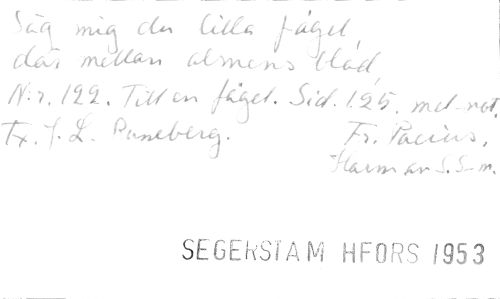 Säg mig du lilla fågel,
där mellan almens blad,
N:r. 122. Till en fågel. Sid. 125. med not.
Tx. J. L. Runeberg. Fr. Pacius,
Harm av S. S-m.
SEGERSTAM HFORS 1953